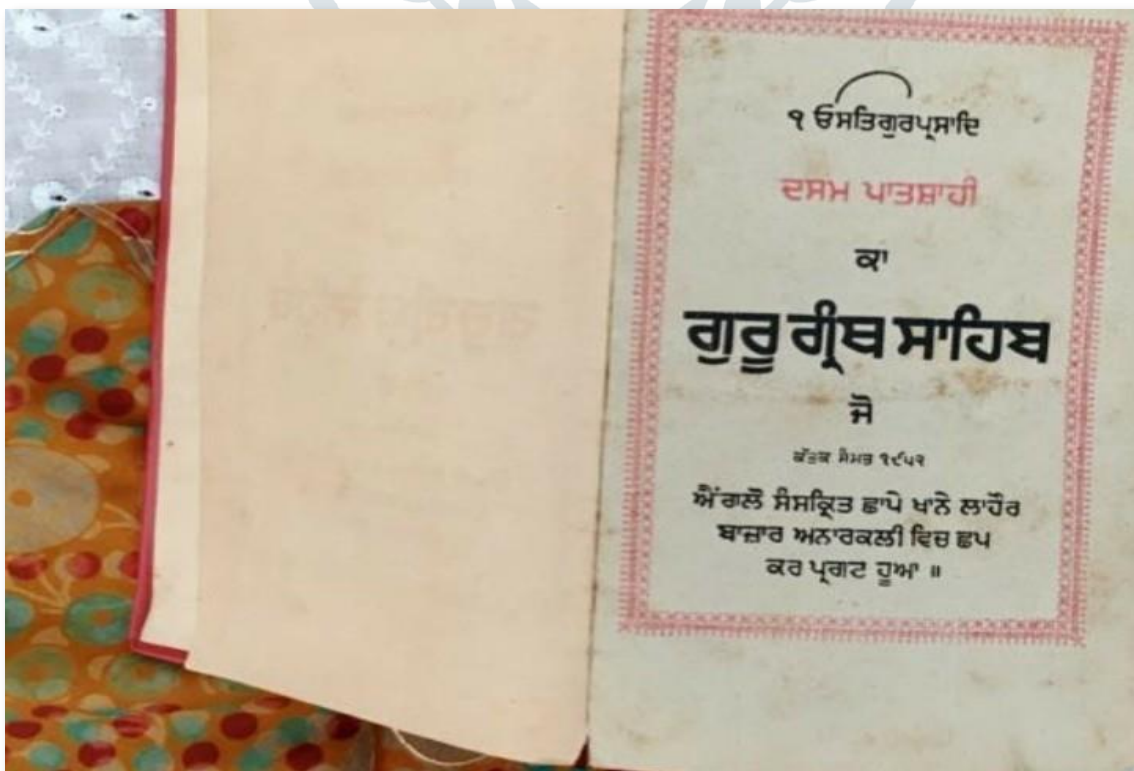 ੧ ਓਸਤਿਗੁਰਪ੍ਰਸਾਦਿ
ਦਸਮ ਪਾਤਸ਼ਾਹੀ
ਕਾ
ਗੁਰੂ ਗ੍ਰੰਥ ਸਾਹਿਬ
ਜੋ
ਕੱਤਕ ਸੰਮਤ ੧੯੫੨
ਐਂਗਲੋ ਸੰਸਕ੍ਰਿਤ ਛਾਪੇ ਖਾਨੇ ਲਾਹੌਰ
ਬਾਜ਼ਾਰ ਅਨਾਰਕਲੀ ਵਿਚ ਛਪ
ਕਰ ਪ੍ਰਗਟ ਹੂਆ ॥